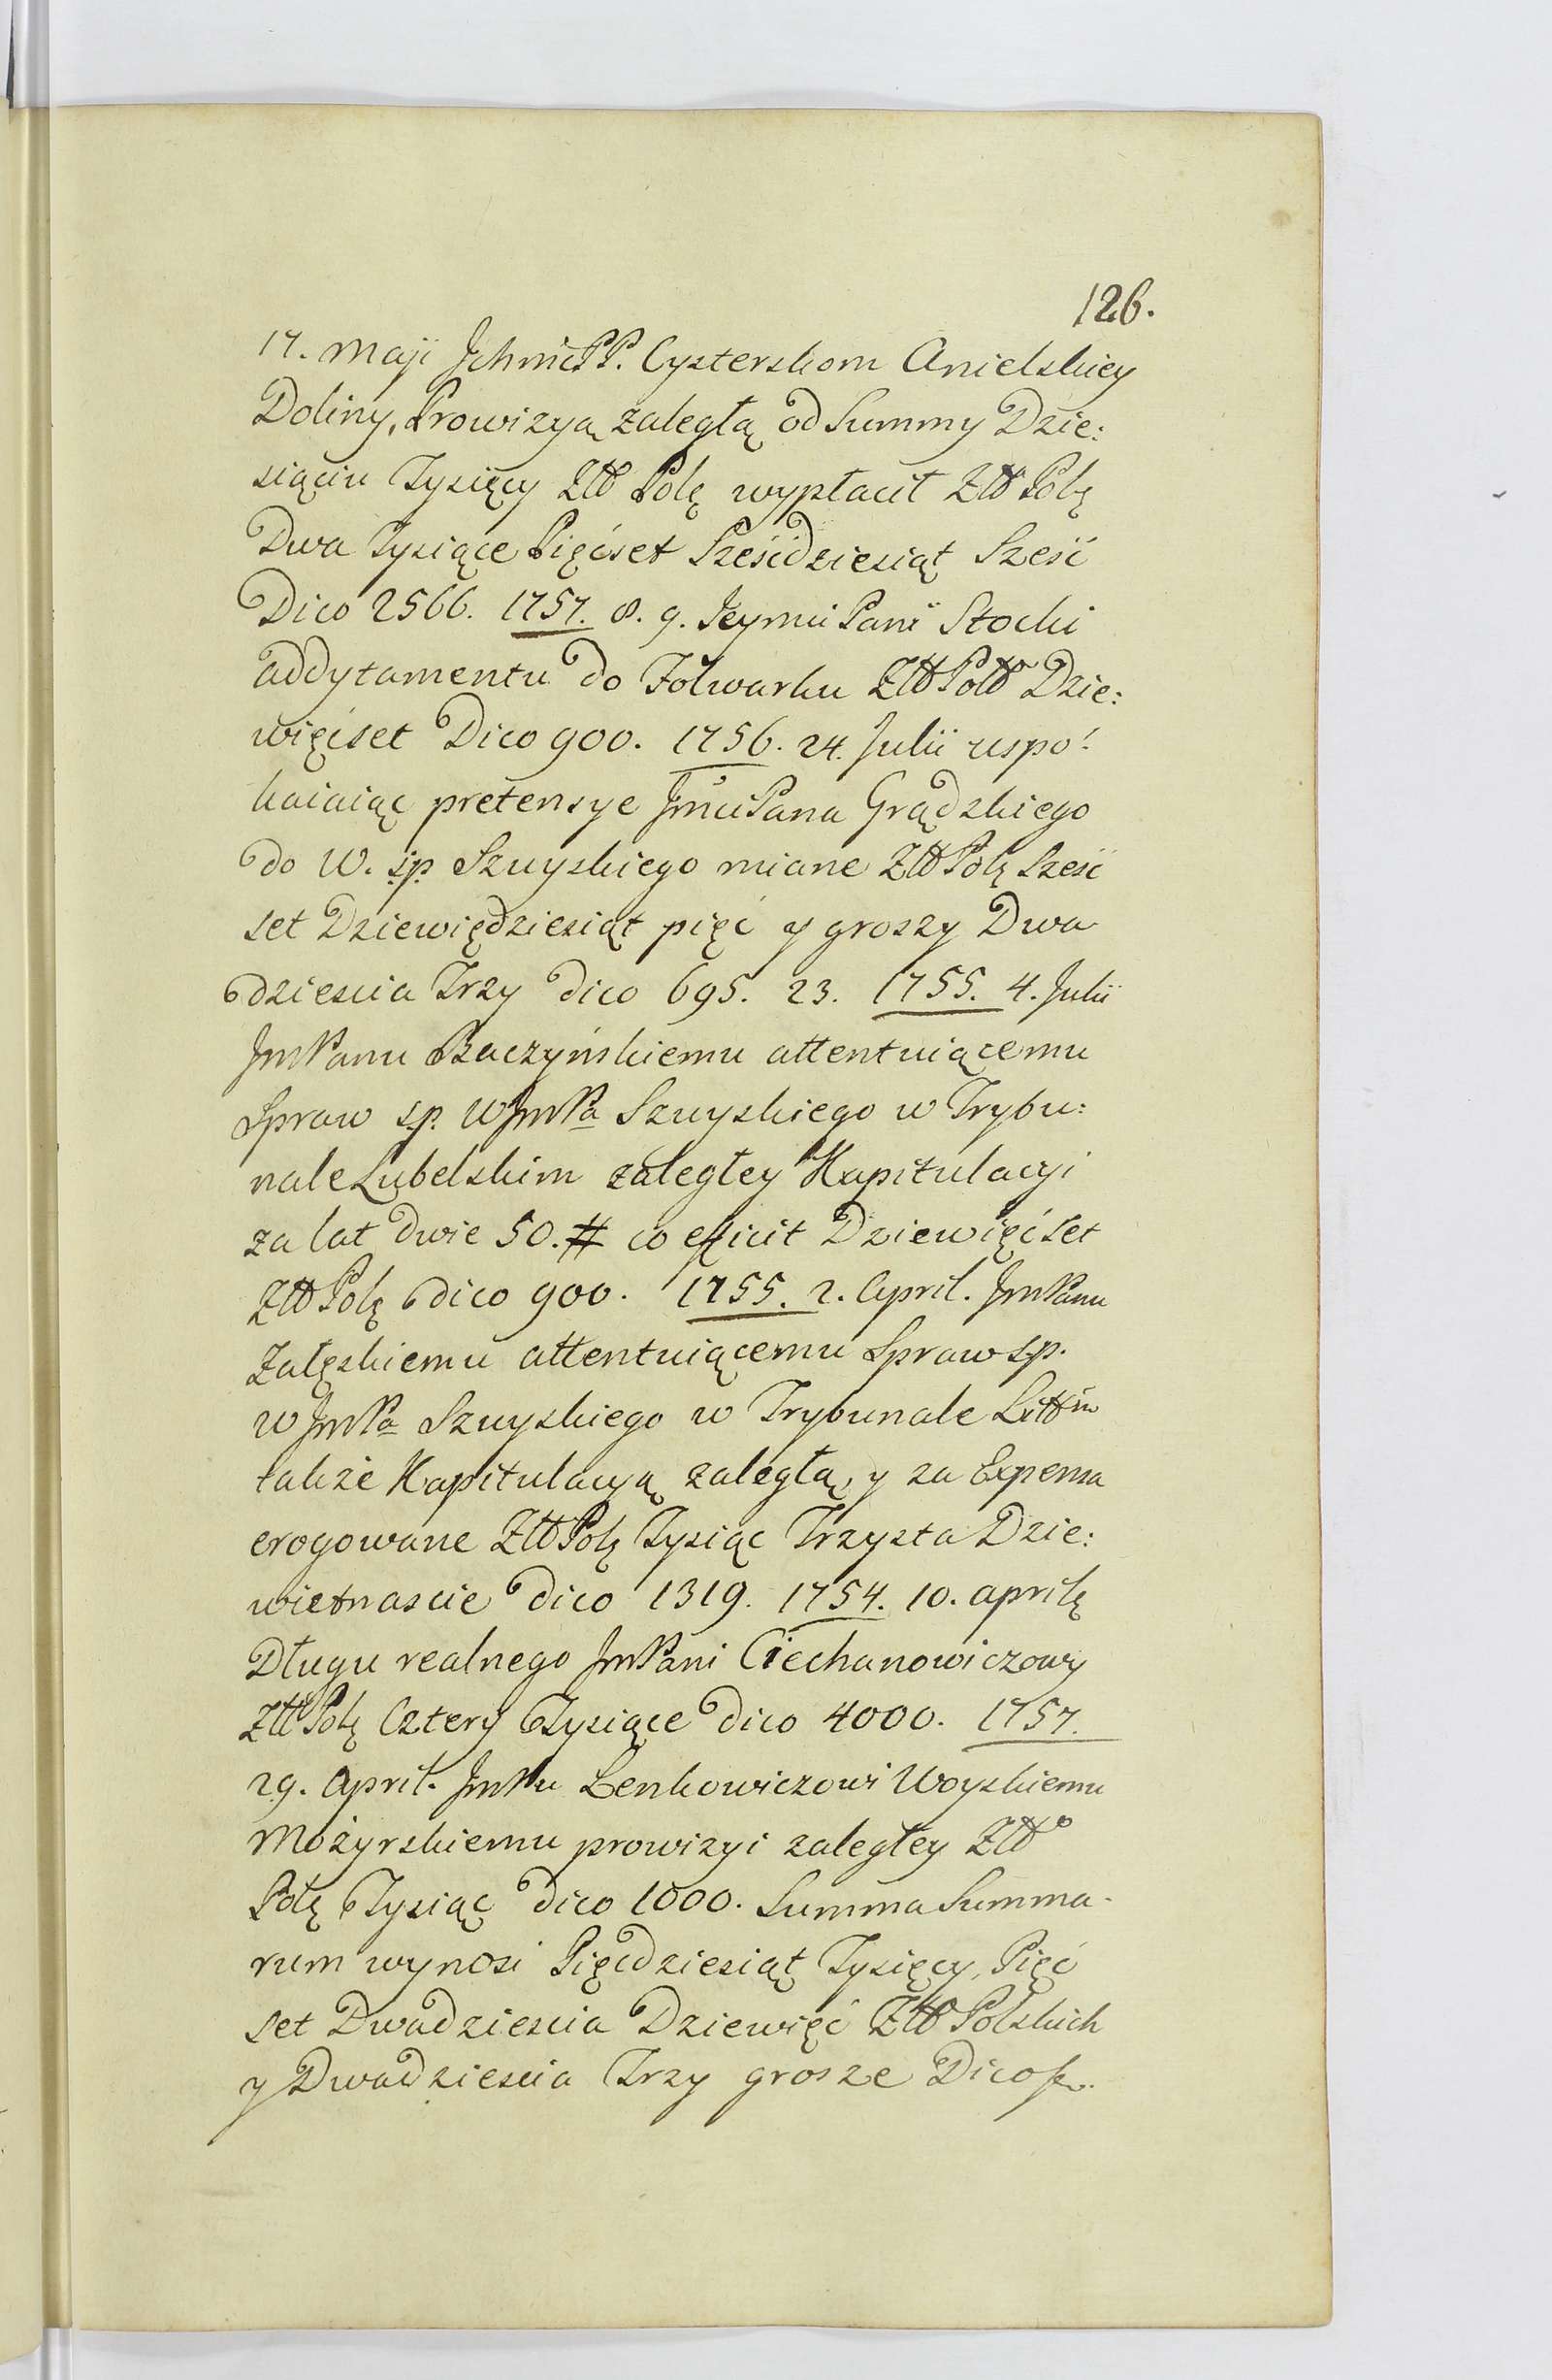 126.
17. Maji JchmćPP. Cysterskom Anielskiey
Doliny, Prowizyą zaległą od Summy Dzie:
siąciu Tysięcy Złł Polę wypłacił Złł Polę
Dwa Tysiące Pięćset Sześćdziesiąt Sześć
Dico 2566. 1757. 8. 9. Jeymci Pani Stocki
addytamentu do Folwarku Złł Poll Dzie:
więćset Dico 900. 1756. 24. Julii uspo:
kaiaiąc pretensye JmciPana Grądzkiego
do W. s.p. Szuyskiego miane Złł Polę Sześć
set Dziewiędziesiąt pięć y groszy Dwa
dziescia Trzy dico 695. 23. 1755. 4. Julii
JmPanu Baczyńskiemu attentuiącemu
Spraw s.p. WJmPa Szuyskiego w Trybu:
nale Lubelskim zaległey Kapitulacyi
za lat dwie 50. # co efficit Dziewięćset
Złł Polę dico 900. 1755. 2. April. JmPanu
Załęskiemu attentuiącemu Spraw s.p.
WJmPa Szuyskiego w Trybunale Littm
także Kapitulacyą zaległą, y za Expensa
erogowane Złł Polę Tysiąc Trzysta Dzie:
wietnascie dico 1319. 1754. 10. aprilę
Długu realnego JmPani Ciechanowiczowy
Złł Polę Cztery Tysiące dico 4000. 1757.
29. April. JmPu Lenkowiczowi Woyskiemu
Możyrskiemu prowizyi zaległey Złł
Polę Tysiąc dico 1000. Summa Summa-
rum wynosi Pięcdziesiąt Tysięcy, Pięć
set Dwadziescia Dziewięć Złł Polskich
y Dwadziescia Trzy grosze Dico